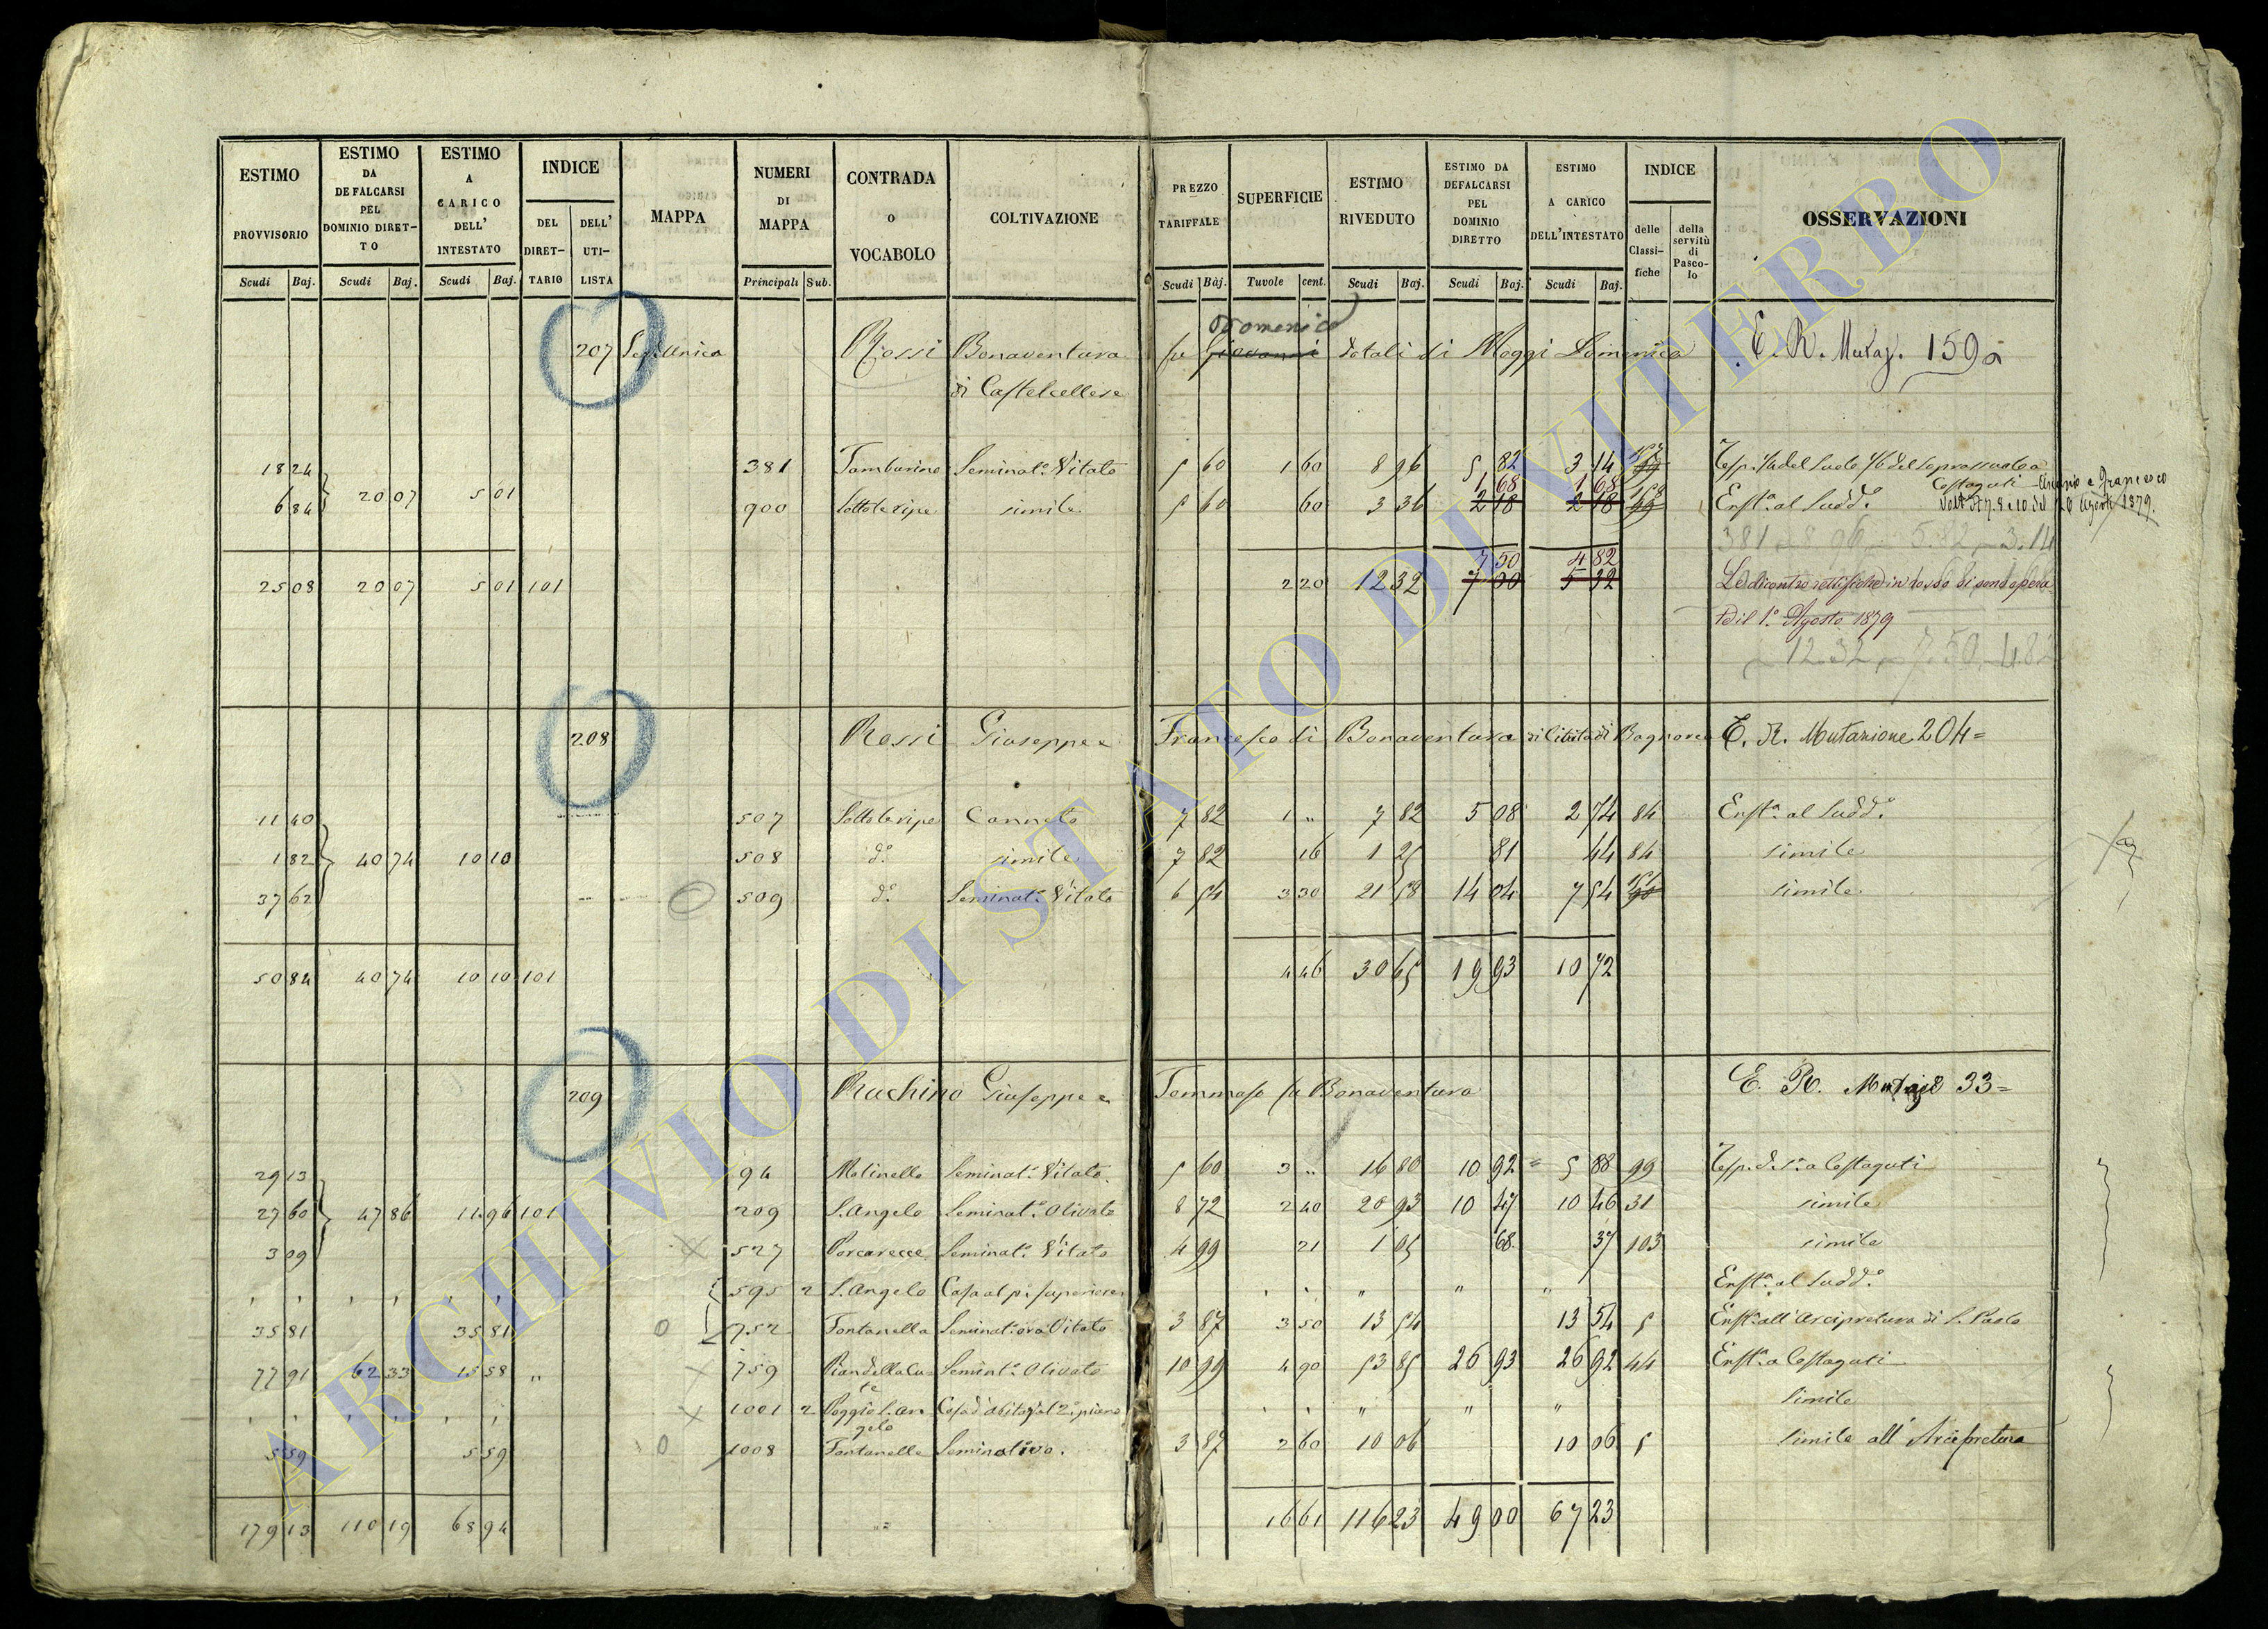 ESTIMO PROVVISORIO Scudi Baj. ESTIMO DA DEFALCARSI PEL DOMINIO DIRETTO Scudi Baj. ESTIMO A CARICO DELL' INTESTATO Scudi Baj. INDICE DEL DIRETTARIO DELL' UTILISTA MAPPA NUMERI DI MAPPA Principali Sub. CONTRADA O VOCABOLO COLTIVAZIONE PREZZO TARIFFALE Scudi Baj. SUPERFICIE Tavole cent. ESTIMO RIVEDUTO Scudi Baj. ESTIMO DA DEFALCARSI PEL DOMINIO DIRETTO Scudi Baj. ESTIMO A CARICO DELL'INTESTATO Scudi Baj. INDICE delle Classifiche della servitù di Pascolo OSSERVAZIONI
Domenico
207 Sez. Unica Rossi Bonaventura fu Giovanni dotali di Moggi Domenica E. R. Mutaz. 159
di Castelcellese
18 24 381 Tamburino Seminat.º Vitato 5 60 1 60 8 96 5 82 3 14
20 07 5 01 1 68 1 68 Costaguti Ascanio e Francesco
6 84 900 Sottoleripe simile 5 60 60 3 36 2 18 2 18 Enft.ª al Sudd.º
381 8.96 5.82 3.14
7 50 4 82
25 08 20 07 5 01 101 2 20 12 32 7 00 5 32 Le dicontro rettifiche in rosso si sono opera
te il 1.º Agosto 1879
12.32 7.50 4.82
208 Rossi Giuseppe e Francesco di Bonaventura di Civita di Bagnorea E. R. Mutazione 204=
11 40 507 Sottoleripe Canneto 7 82 1 „ 7 82 5 08 2 74 84 Enft.ª al Sudd.º
1 82 40 74 10 10 508 d.º simile 7 82 16 1 25 81 44 84 simile
37 62 509 d.º Seminat.º Vitato 6 54 3 30 21 58 14 04 7 54 simile
50 84 40 74 10 10 101 4 46 30 65 19 93 10 72
209 Rachino Giuseppe e Tommaso fu Bonaventura E. R. 33=
29 13 94 Molinella Seminat.º Vitato 5 60 3 „ 16 80 10 92 = 5 88 99 Costaguti
27 60 47 86 11 96 101 209 S. Angelo Seminat.º Olivato 8 72 2 40 20 93 10 47 10 46 31 simile
3 09 527 Porcarecce Seminat.º Vitato 4 99 21 1 05 68 37 103 simile
, , , , , , 595 2 S. Angelo Casa al p. superiore , , „ „ „ Enft.ª al Sudd.º
35 81 35 81 0 752 Fontanella Seminat.º ora Vitato 3 87 3 50 13 54 13 54 5 Enft.ª all'Arcipretura di S. Paolo
77 91 62 33 15 58 „ 759 Piandella Ca= Seminat.º Olivato 10 99 4 90 53 85 26 93 26 92 44 Enft.ª a Costaguti
te
, , , , , , 1001 2 Poggio S. An Casa d'abitaz. al 2.º piano , , „ „ „ simile
gelo
5 59 5 59 0 1008 Fontanella Seminativo. 3 87 2 60 10 06 10 06 5 simile all'Arcipretura
179 13 110 19 68 94 16 61 116 23 49 00 67 23
ARCHIVIO DI STATO DI VITERBO